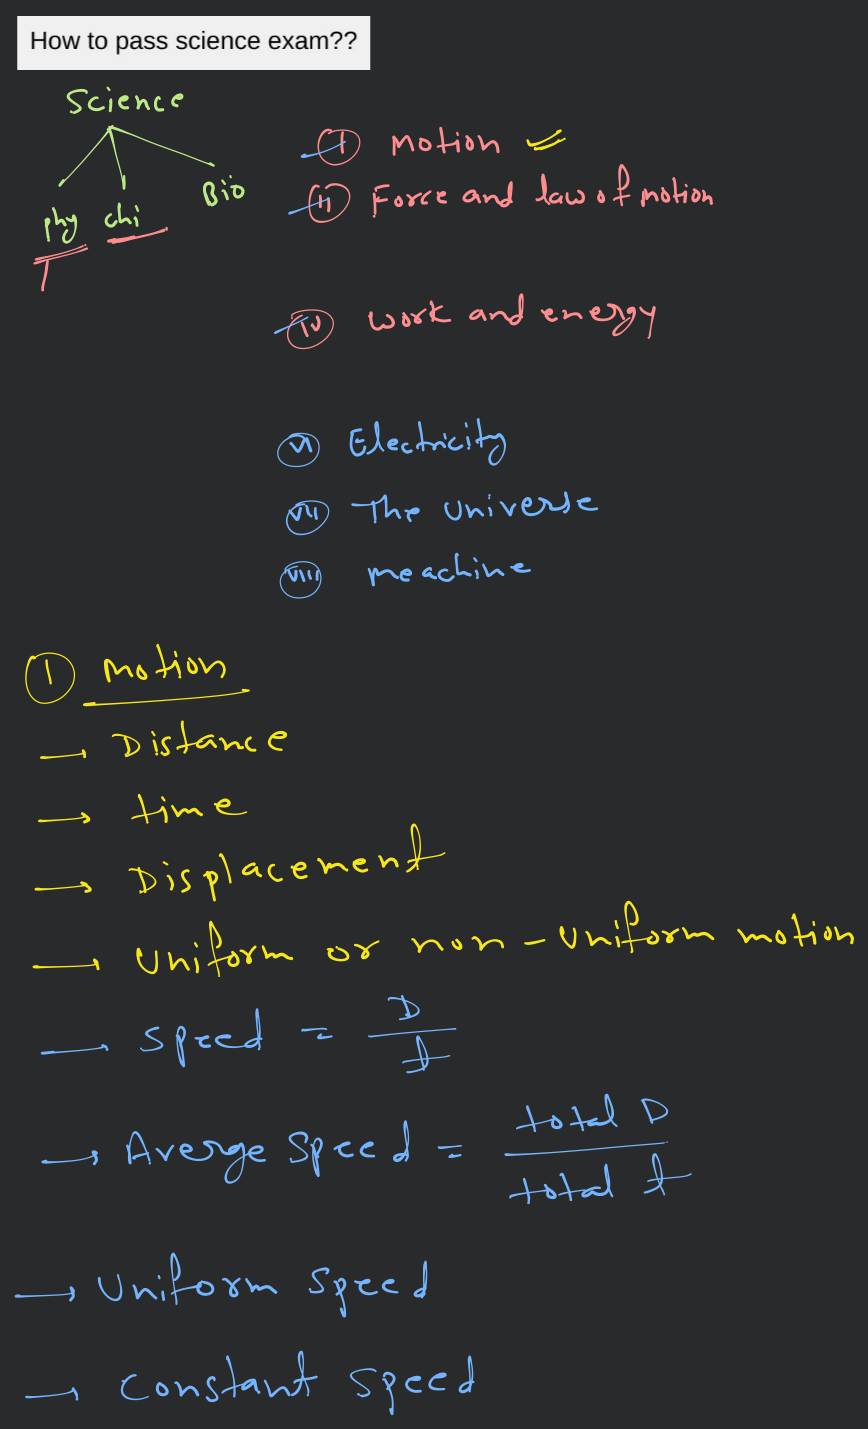 How to pass science exam??
Science
phy chi Bio
I Motion
II Force and law of motion
IV work and energy
VI Electricity
VII The universe
VIII meachine
1 motion
→ Distance
→ time
→ Displacement
→ uniform or non-uniform motion
→ Speed = D/t
→ Averge Speed = total D/total t
→ Uniform Speed
→ Constant Speed